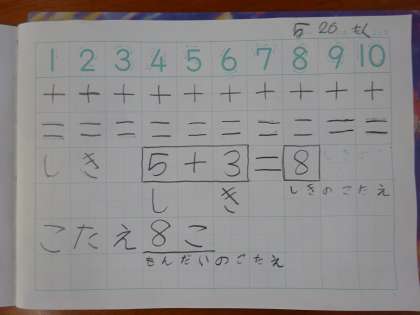 5 26
1 2 3 4 5 6 7 8 9 10
+ + + + + + + + + +
= = = = = = = = = =
しき 5+3=8
しき しきのこたえ
こたえ8こ
もんだいのこたえ